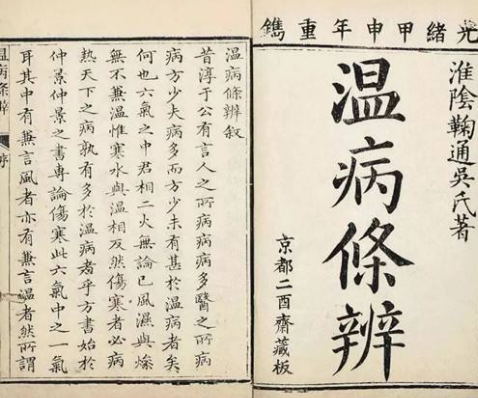 光緒甲申年重鐫
淮陰鞠通吳氏著
温病條辨
京都二酉齋藏板
温病條辨叙
昔淳于公有言人之所病病病多醫之所病
病方少夫病多而方少未有甚於温病者矣
何也六氣之中君相二火無論已風濕與燥
無不兼温惟寒水與温相反然傷寒者必病
熱天下之病孰有多於温病者乎方書始於
仲景仲景之書專論傷寒此六氣中之一氣
耳其中有兼言風者亦有兼言温者然所謂
温病條辨 序